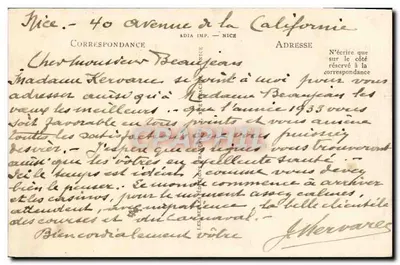 Nice. - 40 avenue de la Californie
ADIA IMP. - NICE
CORRESPONDANCE
ADRESSE
N'écrire que
sur le côté
réservé à la
correspondance
Cher Monsieur Beaujean
Madame Kervarec se joint à moi pour vous
adresser ainsi qu'à Madame Beaujean les
vœux les meilleurs. - que l'année 1933 vous
soit favorable en tous points et vous amène
toutes les satisf vous puissiez
désirer. - J'esp vous trouveront
ainsi que les vôtres en excellente santé. -
Ici le temps est idéal comme vous devez
bien le penser. Le monde commence à arriver
et les casinos, pour le moment assez calmes,
attendent, avec impatience, la belle clientèle
des courses et du Carnaval. -
Bien cordialement vôtre
JKervarec
PRCARTE.COM